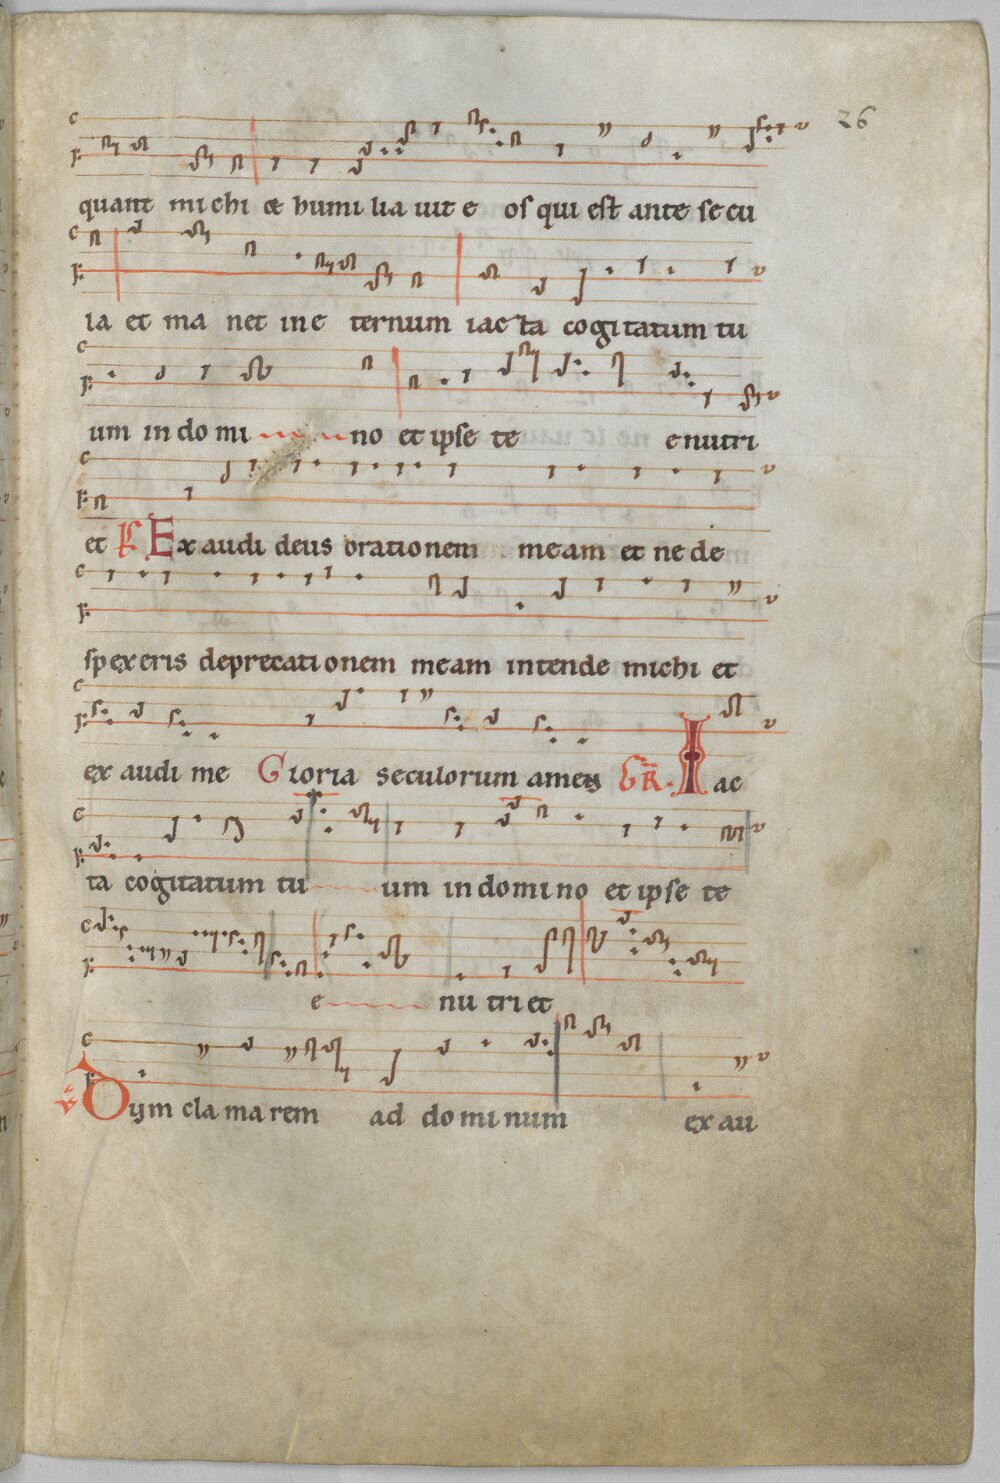 26
quant michi & humiliavit e os qui est ante secu
ia et ma net in e ternum iac ta cogitatum tu
um in do mi no et ipse te enutri
et Exaudi deus orationem meam et ne de
spexeris deprecationem meam intende michi et
exaudi me Gloria seculorum amen Iac
ta cogitatum tu um in domino et ipse te
e nu tri et
Dum clamarem ad dominum exau